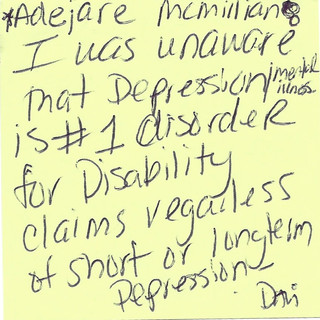 *Adejare McMillian
I was unaware
that Depression/mental illness
is #1 disorder
for Disability
claims regadless
of short or longterm
Depression–